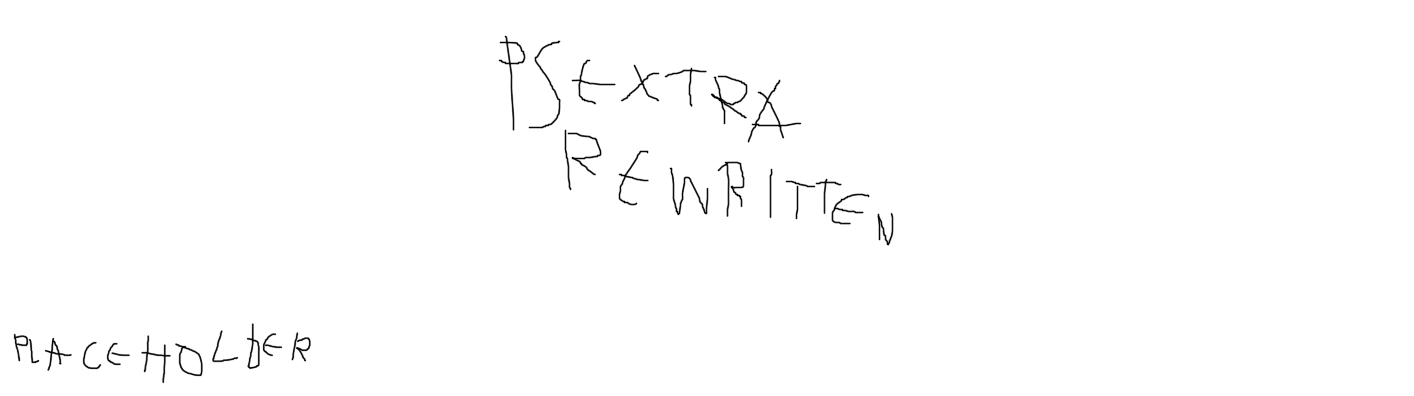 PSEXTRA
REWRITTEN
PLACEHOLDER